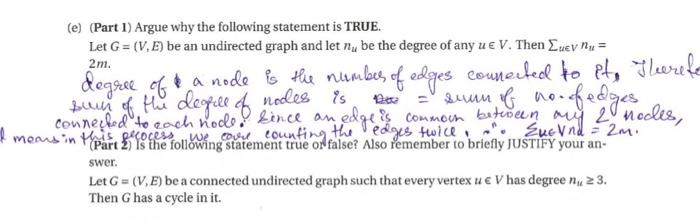 (e) (Part 1) Argue why the following statement is TRUE.
Let G = (V, E) be an undirected graph and let nᵤ be the degree of any u ∈ V. Then Σᵤ∈V nᵤ =
2m.
degree of a node is the number of edges connected to it, Therefo
sum of the degree of nodes is = sum of no. of edges
connected to each node. Since an edge is common between any 2 nodes,
means in this process, we are counting the edges twice, ∴ Σu∈V nd = 2m.
(Part 2) Is the following statement true or false? Also remember to briefly JUSTIFY your an-
swer.
Let G = (V, E) be a connected undirected graph such that every vertex u ∈ V has degree nᵤ ≥ 3.
Then G has a cycle in it.